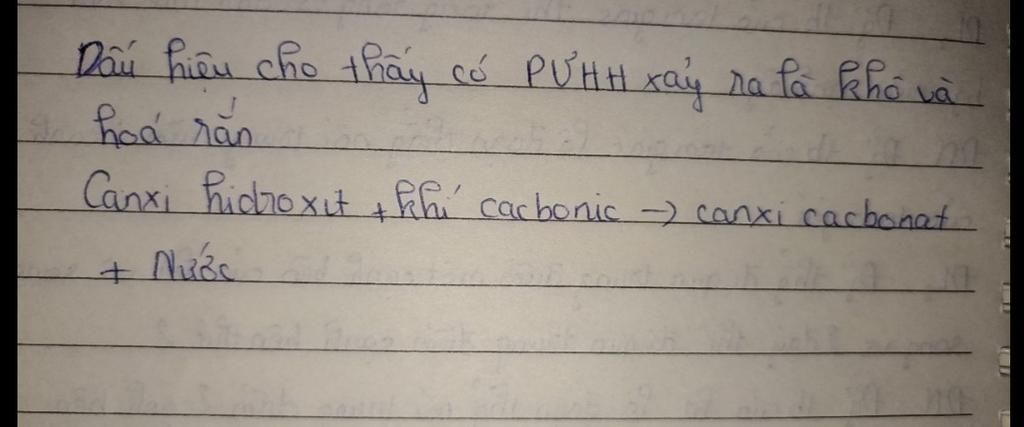 Dấu hiệu cho thấy có PƯHH xảy ra là khô và
hoá rắn
Canxi hidroxit + khí cacbonic → canxi cacbonat
+ Nước